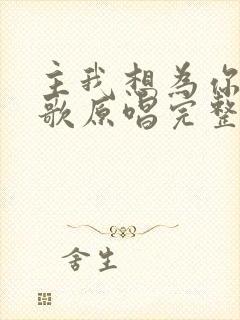 主我想为你
歌原唱完整
舍生